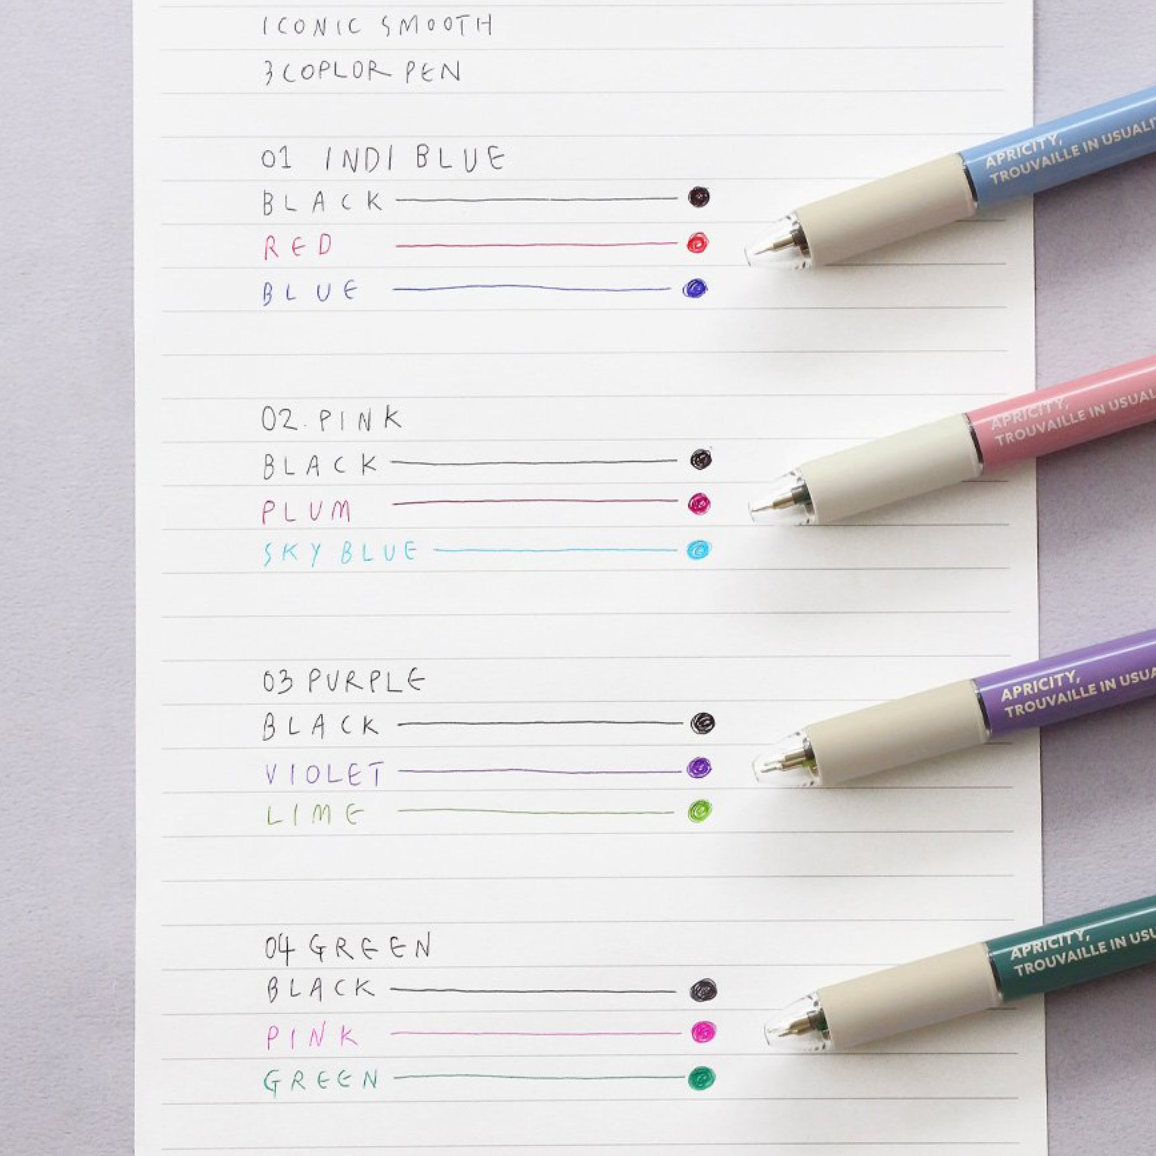 ICONIC SMOOTH
3 COPLOR PEN
01 INDI BLUE
BLACK
RED
BLUE
02. PINK
BLACK
PLUM
SKY BLUE
03 PURPLE
BLACK
VIOLET
LIME
04 GREEN
BLACK
PINK
GREEN
APRICITY,
TROUVAILLE IN USUALI
APRICITY,
TROUVAILLE IN USUAL
APRICITY,
TROUVAILLE IN USUA
APRICITY,
TROUVAILLE IN USU